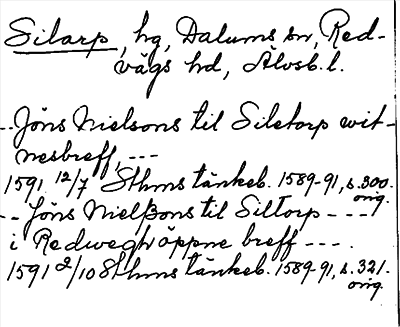 Silarp, hg, Dalums sn, Red-
vägs hd, Älvsb. l.
-- Jöns Nielsons til Siletorp wit-
nesbreff, ---
1591 12/7 Sthms tänkeb. 1589-91, s. 300.
orig.
-- Jöns Nielßons til Siltorp ----
i Redweghöppne breff ----.
1591 2/10 Sthms tänkeb. 1589-91, s. 321.
orig.